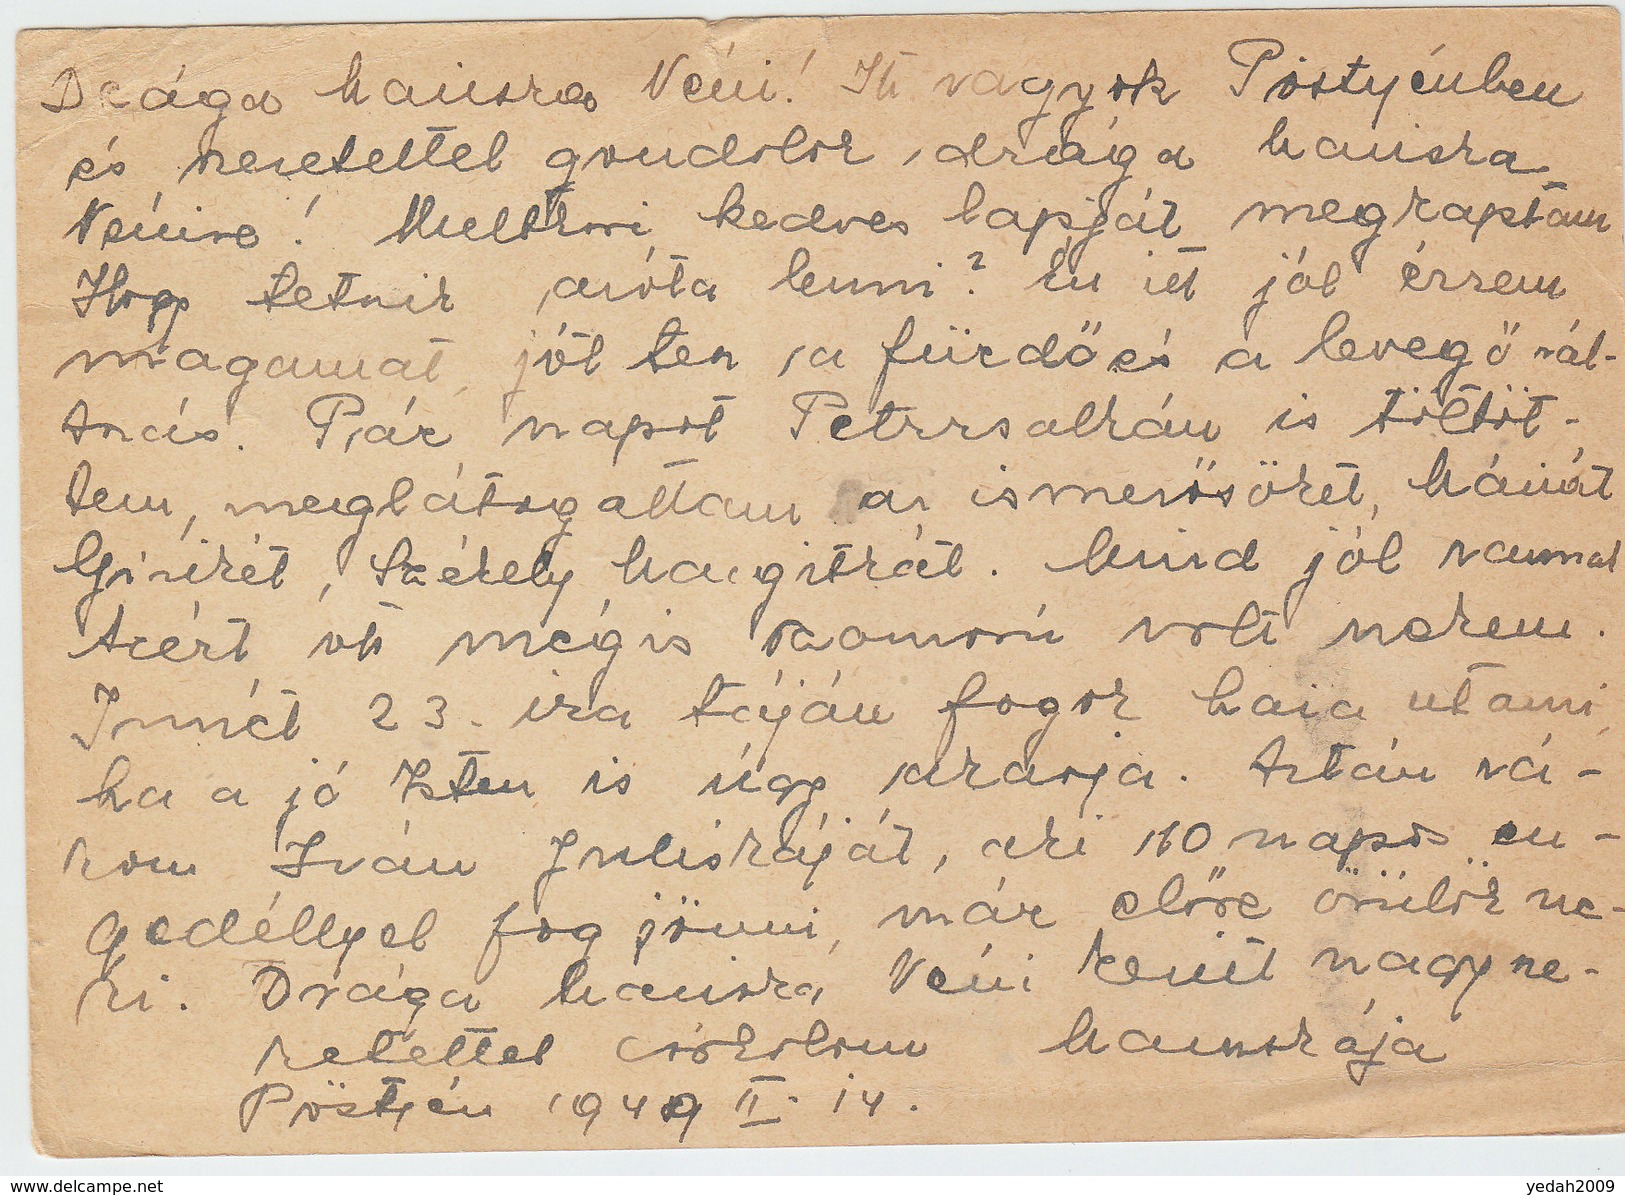 Drága Mariska Néni! Itt vagyok Pöstyénben
és szeretettel gondolok drága Mariska
Nénire! Multkori kedves lapját megkaptam
Hogy tetszik azóta lenni? Én itt jól érzem
magamat, jót tesz a fürdő és a levegő vál-
tozás. Pár napot Petrzsalkán is töltöt-
tem, meglátogattam az ismerősöket,
Székely Margitkát. Mind jól vannak
Azért ott mégis szomorú volt nekem.
Innét 23.-ika táján fogok haza utazni,
ha a jó Isten is úgy akarja. Aztán vá-
rom Iván Juliskáját, aki 10 napos en-
gedéllyel fog jönni, már előre örülök ne-
ki. Drága Mariska Néni kezeit nagy sze-
retettel csókolom Mariskája
Pöstyén 1949 II. 14.
www.delcampe.net
yedah2009